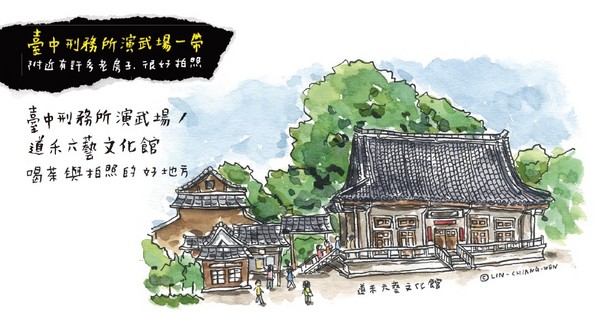 臺中刑務所演武場一帶
附近有許多老房子,很好拍照
臺中刑務所演武場/
道禾六藝文化館
喝茶與拍照的好地方
道禾六藝文化館
© LIN-CHIANG-WEN